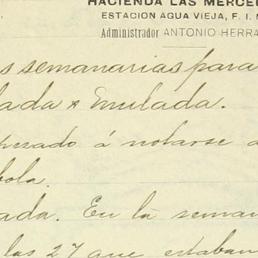 HACIENDA LAS MERCE
ESTACION AGUA VIEJA, F. I. M
Administrador ANTONIO HERRA
s semanarias para
lada x Emulada.
pezado á notarse a
bola.
ada. En la seman
las 27 que estaban